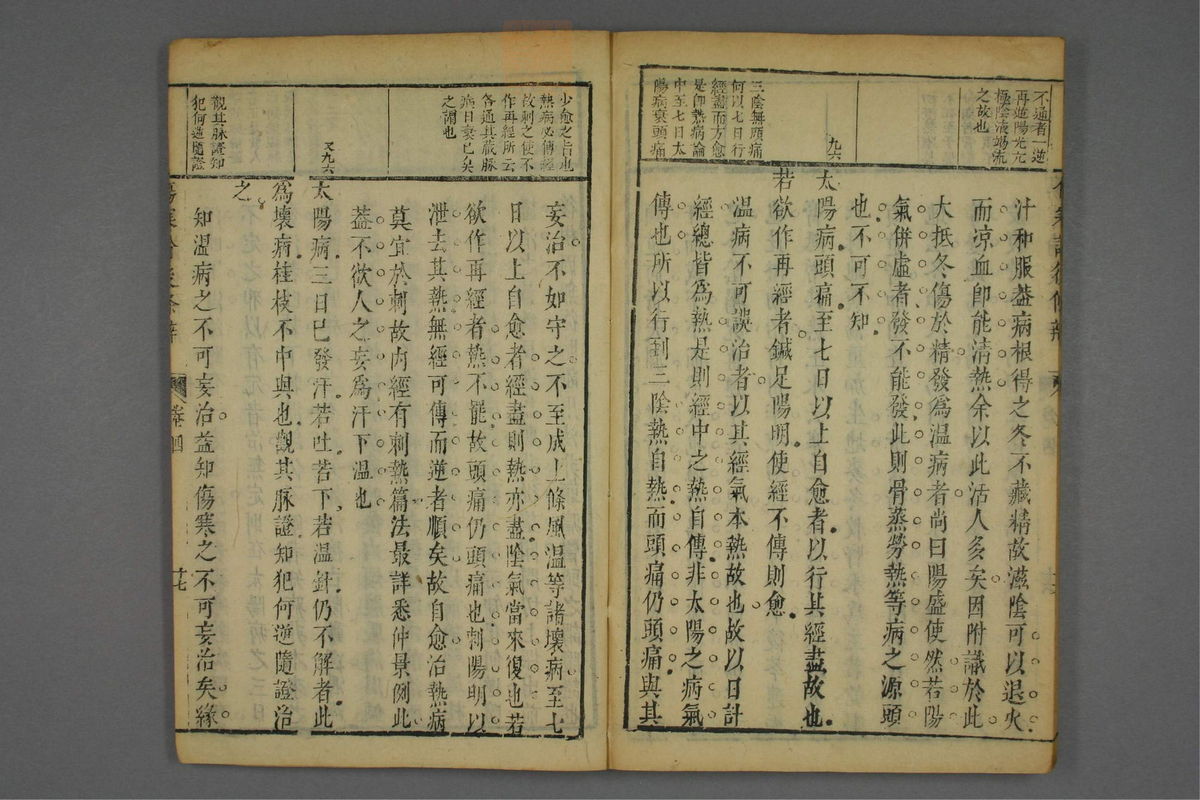 不通者一逆
再逆陽先亢
極陰液竭流
之故也
九六
三陰無頭痛
何以七日行
經盡而方愈
是卽熱病論
中至七日太
陽病衰頭痛
汁和服蓋病根得之冬不藏精故滋陰可以退火
而涼血卽能清熱余以此活人多矣因附識於此
大抵冬傷於精發爲溫病者尚曰陽盛使然若陽
氣併虛者發不能發此則骨蒸勞熱等病之源頭
也不可不知
太陽病頭痛至七日以上自愈者以行其經盡故也
若欲作再經者鍼足陽明使經不傳則愈
溫病不可誤治者以其經氣本熱故也故以日計
經總皆爲熱是則經中之熱自傳非太陽之病氣
傳也所以行到三陰熱自熱而頭痛仍頭痛與其
少愈之旨也
熱病必傳經
故刺之使不
作再經所云
各通其藏脉
病日衰已矣
之謂也
又九六
觀其脉證知
犯何逆隨證
妄治不如守之不至成上條風溫等諸壞病至七
日以上自愈者經盡則熱亦盡陰氣當來復也若
欲作再經者熱不罷故頭痛仍頭痛也刺陽明以
泄去其熱無經可傳而逆者順矣故自愈治熱病
莫宜於刺故內經有刺熱篇法最詳悉仲景例此
蓋不欲人之妄爲汗下溫也
太陽病三日已發汗若吐若下若溫針仍不解者此
爲壞病桂枝不中與也觀其脉證知犯何逆隨證治
之
知溫病之不可妄治益知傷寒之不可妄治矣緣
卷四
十七